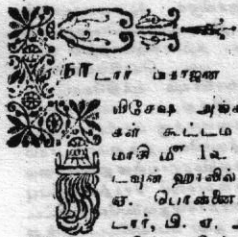 நாடார் மகாஜன
விசேஷ அங்க
கள் கூட்டம்
மாசி மீ 1உ
டவுன் ஹாலில்
ஏ. பொன்னை
டார், பி. ஏ.